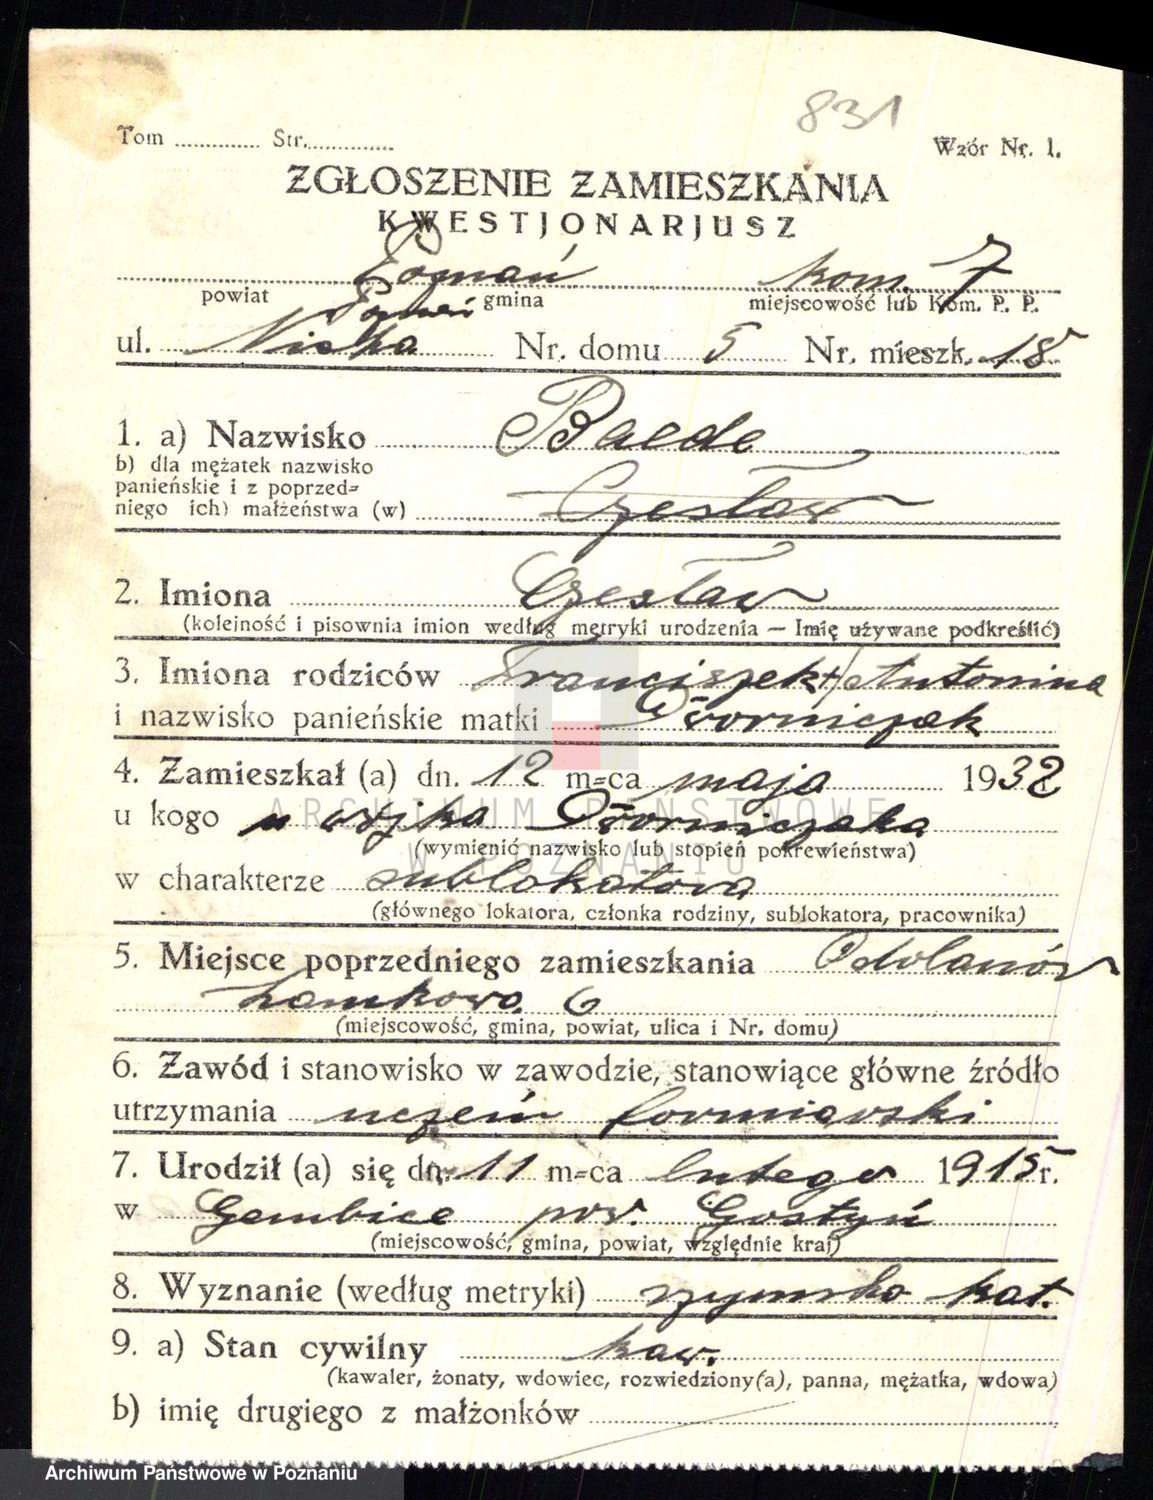 831
Tom ............ Str. ............ Wzór Nr. 1.
ZGŁOSZENIE ZAMIESZKANIA
KWESTJONARJUSZ
Poznań kom. 7
powiat gmina miejscowość lub Kom. P. P.
Poznań
ul. Niska Nr. domu 5 Nr. mieszk. 18
1. a) Nazwisko Baede
b) dla mężatek nazwisko
panieńskie i z poprzed-
niego ich) małżeństwa (w) Czesław
2. Imiona Czesław
(kolejność i pisownia imion według metryki urodzenia — Imię używane podkreślić)
3. Imiona rodziców Franciszek + / Antonina
i nazwisko panieńskie matki Dworniczak
4. Zamieszkał (a) dn. 12 m=ca maja 1932
u kogo u wujka Dworniczaka
(wymienić nazwisko lub stopień pokrewieństwa)
w charakterze sublokatora
(głównego lokatora, członka rodziny, sublokatora, pracownika)
5. Miejsce poprzedniego zamieszkania Odolanów
Zamkowa 6
(miejscowość, gmina, powiat, ulica i Nr. domu)
6. Zawód i stanowisko w zawodzie, stanowiące główne źródło
utrzymania uczeń formiarski
7. Urodził (a) się dn. 11 m=ca lutego 1915 r.
w Gembice pow. Gostyń
(miejscowość, gmina, powiat, względnie kraj)
8. Wyznanie (według metryki) rzymsko kat.
9. a) Stan cywilny kaw.
(kawaler, żonaty, wdowiec, rozwiedziony(a), panna, mężatka, wdowa)
b) imię drugiego z małżonków
ARCHIWUM PAŃSTWOWE
W POZNANIU
Archiwum Państwowe w Poznaniu